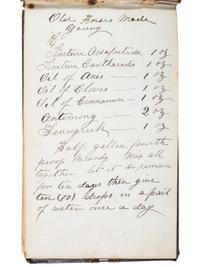 Old Horses Made
Young
℞
Tincture Assafoetida 1 oz
Tincture Cantharades 1 oz
Oil of Anis — 1 oz
Oil of Cloves — 1 oz
Oil of Cinnamon — 1 oz
Antimony — 2 oz
Fenugreek — 1 oz
Half gallon fourth
proof Brandy Mix all
together let it remain
for ten days then give
ten (10) drops in a pail
of water once a day